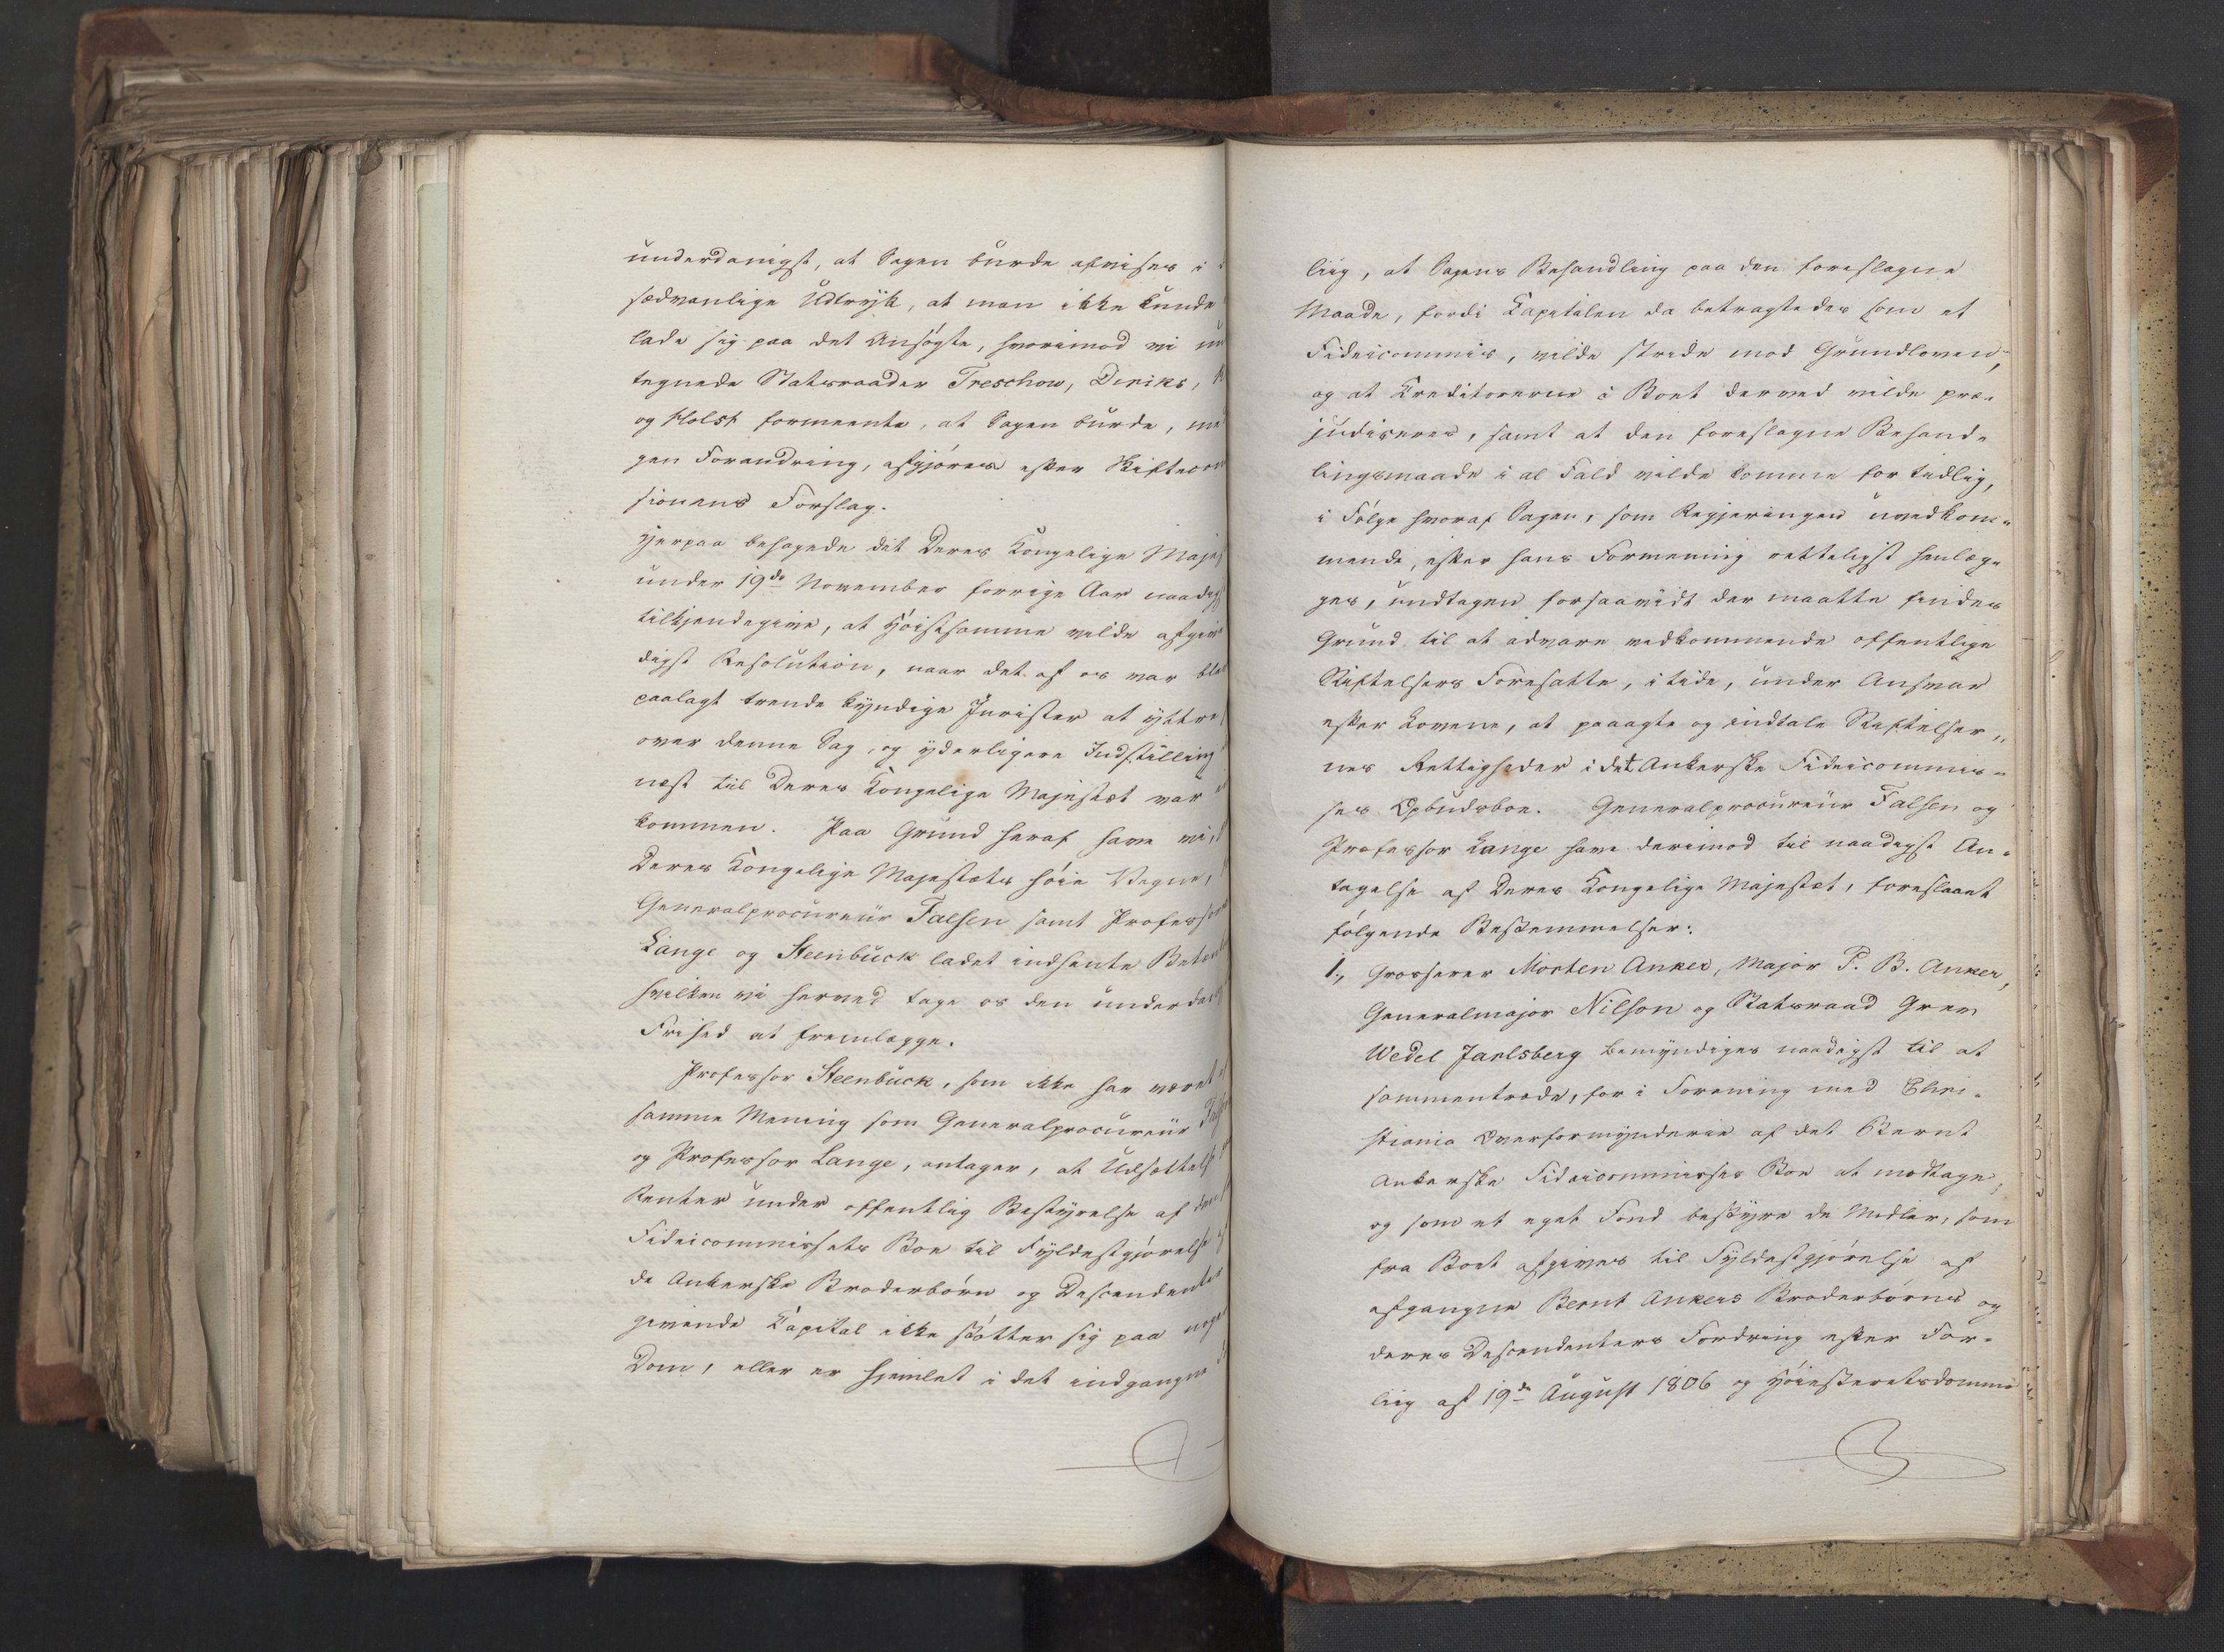 underdanigst, at Sagen burde afvises i
sædvanlige Udtryk, at man ikke kunde
lade sig paa det Ansøgte, hvorimod vi un
tegnede Statsraader Treschow, Diriks,
og Holst formeente, at Sagen burde, med
gen Forandring, afgjøres efter Skiftecom
sionens Forslag.
Hjerpaa behagede det Deres Kongelige Majes
under 19de November forrige Aar naadigs
tilkjendegive, at Høistsamme vilde afgive
digst Resolution, naar det af os var ble
paalagt trende kyndige Jurister at yttre
over denne Sag, og yderligere Indstilling
næst til Deres Kongelige Majestæt var
kommen. Paa Grund heraf have vi,
Deres Kongelige Majestæts høie Vegne,
Generalprocureur Falsen samt Professor
Lange og Steenbuck ladet indhente Betæn
hvilken vi herved tage os den underdan
Frihed at fremlægge.
Professor Steenbuck, som ikke har været
samme Mening som Generalprocureur Fals
og Professor Lange, antager, at Udsættelse
Renter under offentlig Bestyrelse af den
Fideicommissets Boe til Fyldestgjørelse
de Ankerske Broderbørn og Descendenter
givende Kapital ikke støtter sig paa noge
Dom, eller er hjemlet i det indgangne
liig, at Sagens Behandling paa den foreslagne
Maade, fordi Kapitalen da betragtedes som et
Fideicommis, vilde stride mod Grundloven,
og at Creditorerne i Boet derved vilde præ-
judiseres, samt at den foreslagne Behand-
lingsmaade i al Fald vilde komme for tidlig,
i Følge hvoraf Sagen, som Regjeringen uvedkom-
mende, efter hans Formening retteligst henlæg-
ges, undtagen forsaavidt der maatte findes
Grund til at advare vedkommende offentlige
Stiftelsers Foresatte, i tide, under Ansvar
efter Lovene, at paaagte og indtale Stiftelser-
nes Rettigheder i det Ankerske Fideicommis-
ses Opbudsboe. Generalprocureur Falsen og
Professor Lange have derimod til naadigst An-
tagelse af Deres Kongelige Majestæt, foreslaaet
følgende Bestemmelser:
1., Grosserer Morten Anker, Major P. B. Anker,
Generalmajor Nilson og Statsraad Grev
Wedel Jarlsberg bemyndiges naadigst til at
sammentræde, for i Forening med Chri-
stiania Overformynderie af det Bernt
Ankerske Fideicommisses Boe at modtage,
og som et eget Fond bestyre de Midler, som
fra Boet afgives til Fyldestgjørelse af
afgangne Bernt Ankers Broderbørns og
deres Descendenters Fordring efter For-
liig af 19de August 1806 og Høiesteretsdomme